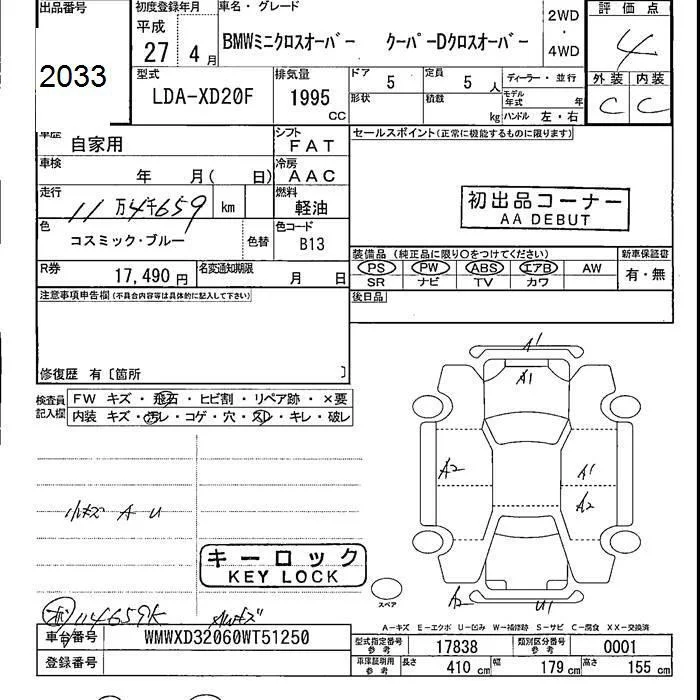 出品番号
2033
初度登録年月
平成
27 4月
車名・グレード
BMWミニクロスオーバー クーパーDクロスオーバー
2WD
・
4WD
評価点
4
外装 内装
C C
型式
LDA-XD20F
排気量
1995 CC
ドア 5
定員 5 人
形状
積載 kg
ディーラー・並行
モデル年式 年
ハンドル 左・右
車歴 自家用
シフト FAT
車検 年 月( 日)
冷房 AAC
走行 11万4千659 km
燃料 軽油
色 コスミック・ブルー
色替
色コード B13
R券 17,490円
名変通知期限 月 日
セールスポイント(正常に機能するものに限ります)
初出品コーナー
AA DEBUT
装備品 (純正品に限り○をつけてください)
新車保証書
PS PW ABS エアB AW
有・無
SR ナビ TV カワ
後日品
注意事項申告欄(不具合内容等は具体的に記入して下さい)
修復歴 有〔箇所 〕
検査員記入欄
FW キズ・飛石・ヒビ割・リペア跡・×要
内装 キズ・汚レ・コゲ・穴・スレ・キレ・破レ
A1
A1
A2
A1
A2
小キズ A U
キーロック
KEY LOCK
スペア
A2
U1
114659K
A-キズ E-エクボ U-凹み W-補修跡 S-サビ C-腐食 XX-交換済
車台番号 WMWXD32060WT51250
登録番号
型式指定番号 参考 17838
類別区分番号 参考 0001
車庫証明用 参考 長さ 410 cm 幅 179 cm 高さ 155 cm